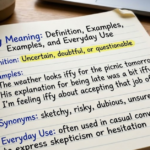 Meaning: Definition, Examples,
Examples, and Everyday Use
ition: Uncertain, doubtful, or questionable
amples:
The weather looks iffy for the picnic tomorro
His explanation for being late was a bit iffy
I'm feeling iffy about accepting that job of
Synonyms: sketchy, risky, dubious, unsure
Everyday Use: often used in casual conv
to express skepticism or hesitation